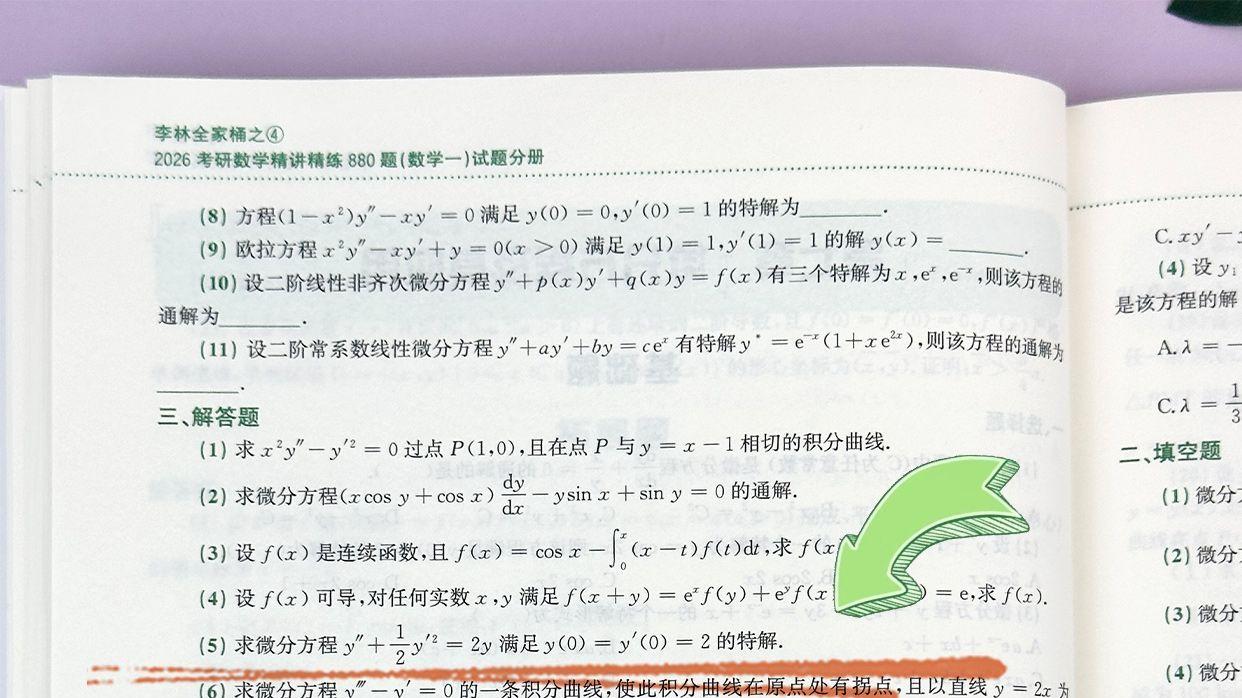 李林全家桶之④
2026 考研数学精讲精练 880 题(数学一)试题分册
(8) 方程(1－x²)y″－xy′＝0 满足 y(0)＝0,y′(0)＝1 的特解为________.
(9) 欧拉方程 x²y″－xy′＋y＝0(x＞0) 满足 y(1)＝1,y′(1)＝1 的解 y(x)＝________.
(10) 设二阶线性非齐次微分方程 y″＋p(x)y′＋q(x)y＝f(x) 有三个特解为 x,eˣ,e⁻ˣ,则该方程的
通解为________.
(11) 设二阶常系数线性微分方程 y″＋ay′＋by＝ceˣ 有特解 y*＝e⁻ˣ(1＋xe²ˣ),则该方程的通解为
________.
三、解答题
(1) 求 x²y″－y′²＝0 过点 P(1,0),且在点 P 与 y＝x－1 相切的积分曲线.
(2) 求微分方程(xcos y＋cos x)dy/dx－ysin x＋sin y＝0 的通解.
(3) 设 f(x) 是连续函数,且 f(x)＝cos x－∫₀ˣ(x－t)f(t)dt,求 f(x
(4) 设 f(x) 可导,对任何实数 x,y 满足 f(x＋y)＝eˣf(y)＋eʸf(x )＝e,求 f(x).
(5) 求微分方程 y″＋1/2 y′²＝2y 满足 y(0)＝y′(0)＝2 的特解.
(6) 求微分方程 y‴－y′＝0 的一条积分曲线,使此积分曲线在原点处有拐点,且以直线 y＝2x 为
C. xy′－
(4) 设 y₁
是该方程的解
A. λ＝
C. λ＝1/3
二、填空题
(1) 微分
(2) 微分
(3) 微分
(4) 微分